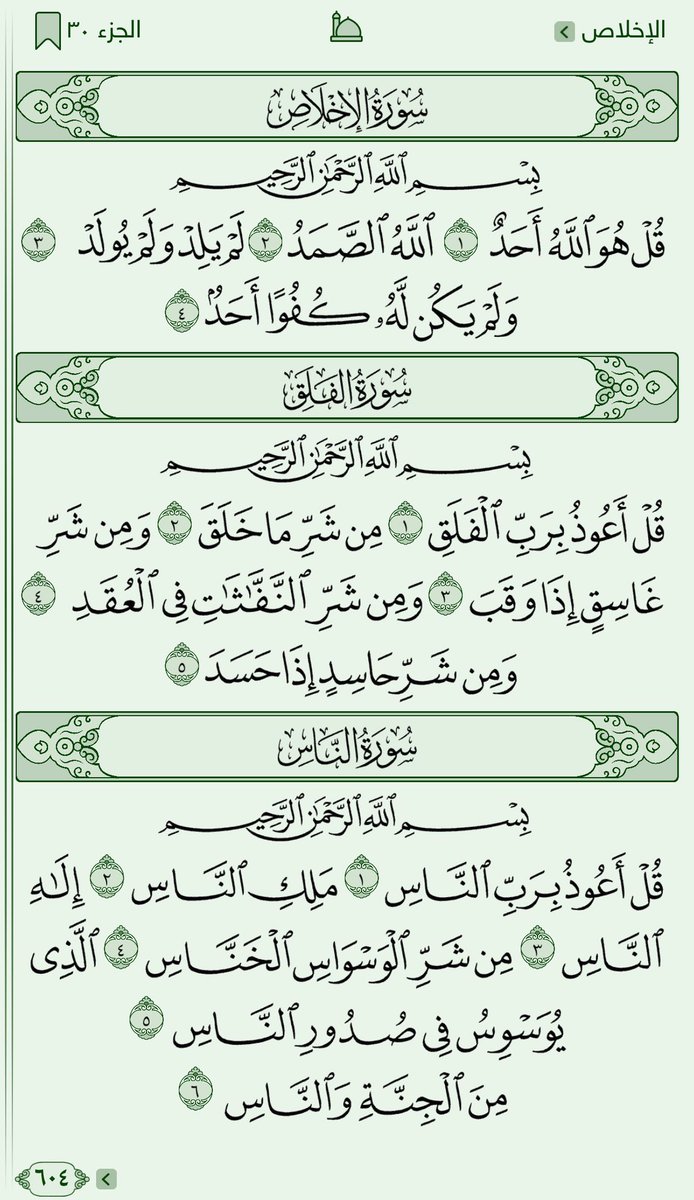 الإخلاص
الجزء ٣٠
سُورَةُ الإِخْلَاصِ
بِسْمِ ٱللَّهِ ٱلرَّحْمَٰنِ ٱلرَّحِيمِ
قُلْ هُوَ ٱللَّهُ أَحَدٌ ١ ٱللَّهُ ٱلصَّمَدُ ٢ لَمْ يَلِدْ وَلَمْ يُولَدْ ٣
وَلَمْ يَكُن لَّهُۥ كُفُوًا أَحَدٌۢ ٤
سُورَةُ الفَلَقِ
بِسْمِ ٱللَّهِ ٱلرَّحْمَٰنِ ٱلرَّحِيمِ
قُلْ أَعُوذُ بِرَبِّ ٱلْفَلَقِ ١ مِن شَرِّ مَا خَلَقَ ٢ وَمِن شَرِّ
غَاسِقٍ إِذَا وَقَبَ ٣ وَمِن شَرِّ ٱلنَّفَّٰثَٰتِ فِى ٱلْعُقَدِ ٤
وَمِن شَرِّ حَاسِدٍ إِذَا حَسَدَ ٥
سُورَةُ النَّاسِ
بِسْمِ ٱللَّهِ ٱلرَّحْمَٰنِ ٱلرَّحِيمِ
قُلْ أَعُوذُ بِرَبِّ ٱلنَّاسِ ١ مَلِكِ ٱلنَّاسِ ٢ إِلَٰهِ
ٱلنَّاسِ ٣ مِن شَرِّ ٱلْوَسْوَاسِ ٱلْخَنَّاسِ ٤ ٱلَّذِى
يُوَسْوِسُ فِى صُدُورِ ٱلنَّاسِ ٥
مِنَ ٱلْجِنَّةِ وَٱلنَّاسِ ٦
٦٠٤